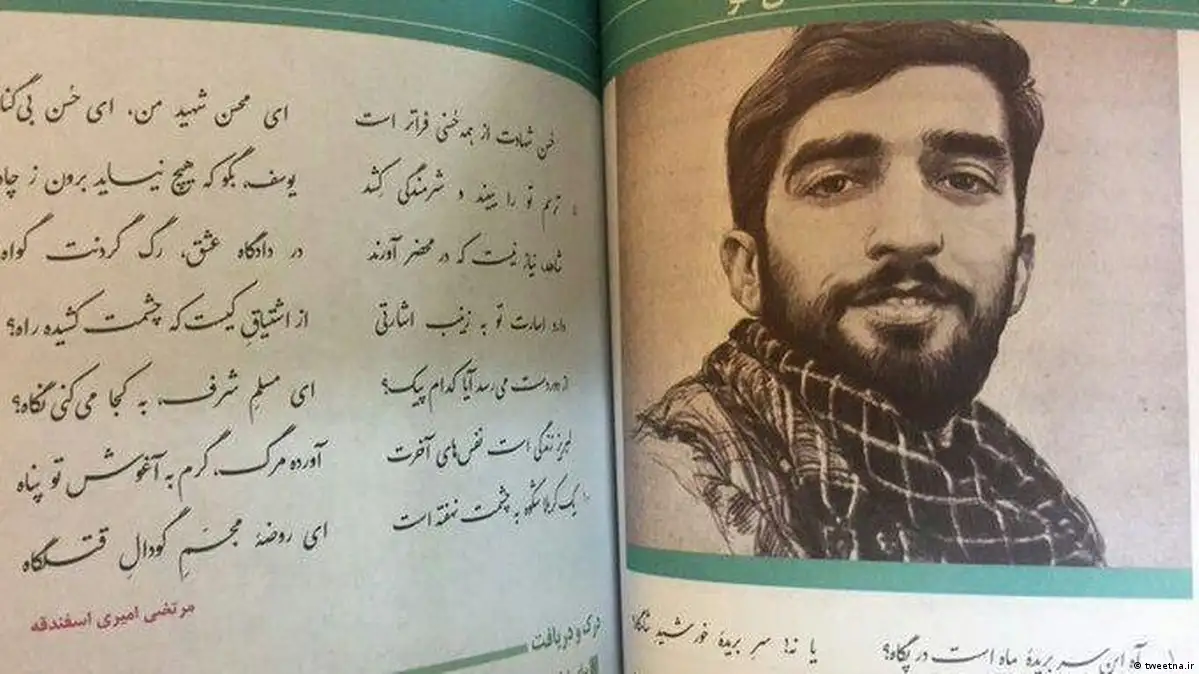 ۱ آه این سر بریدهٔ ماه است در پگاه؟ یا نه! سرِ بریدهٔ خورشید
حُسن شهادت از همه حُسنی فراتر است ای محسن شهید من، ای حُسن
ترسم تو را ببیند و شرمندگی کِشَد یوسف، بگو که هیچ نیاید برون ز
شاهد نیاز نیست که در محضر آورند در دادگاه عشق، رگ گردنت گواه
دارد اسارت تو به زینب اشارتی از اشتیاقِ کیست که چشمت کشیده راه؟
از دوردست می‌رسد آیا کدام پیک؟ ای مسلمِ شرف، به کجا می‌کنی نگاه؟
لبریز زندگی است نفس‌های آخرت آورده مرگ، گرم به آغوش تو پناه
۱۰ یک کربلا شکوه به چشمت نهفته است ای روضهٔ مجسّمِ گودالِ قتلگاه
مرتضی امیری اسفندقه
درک و دریافت
© tweetna.ir